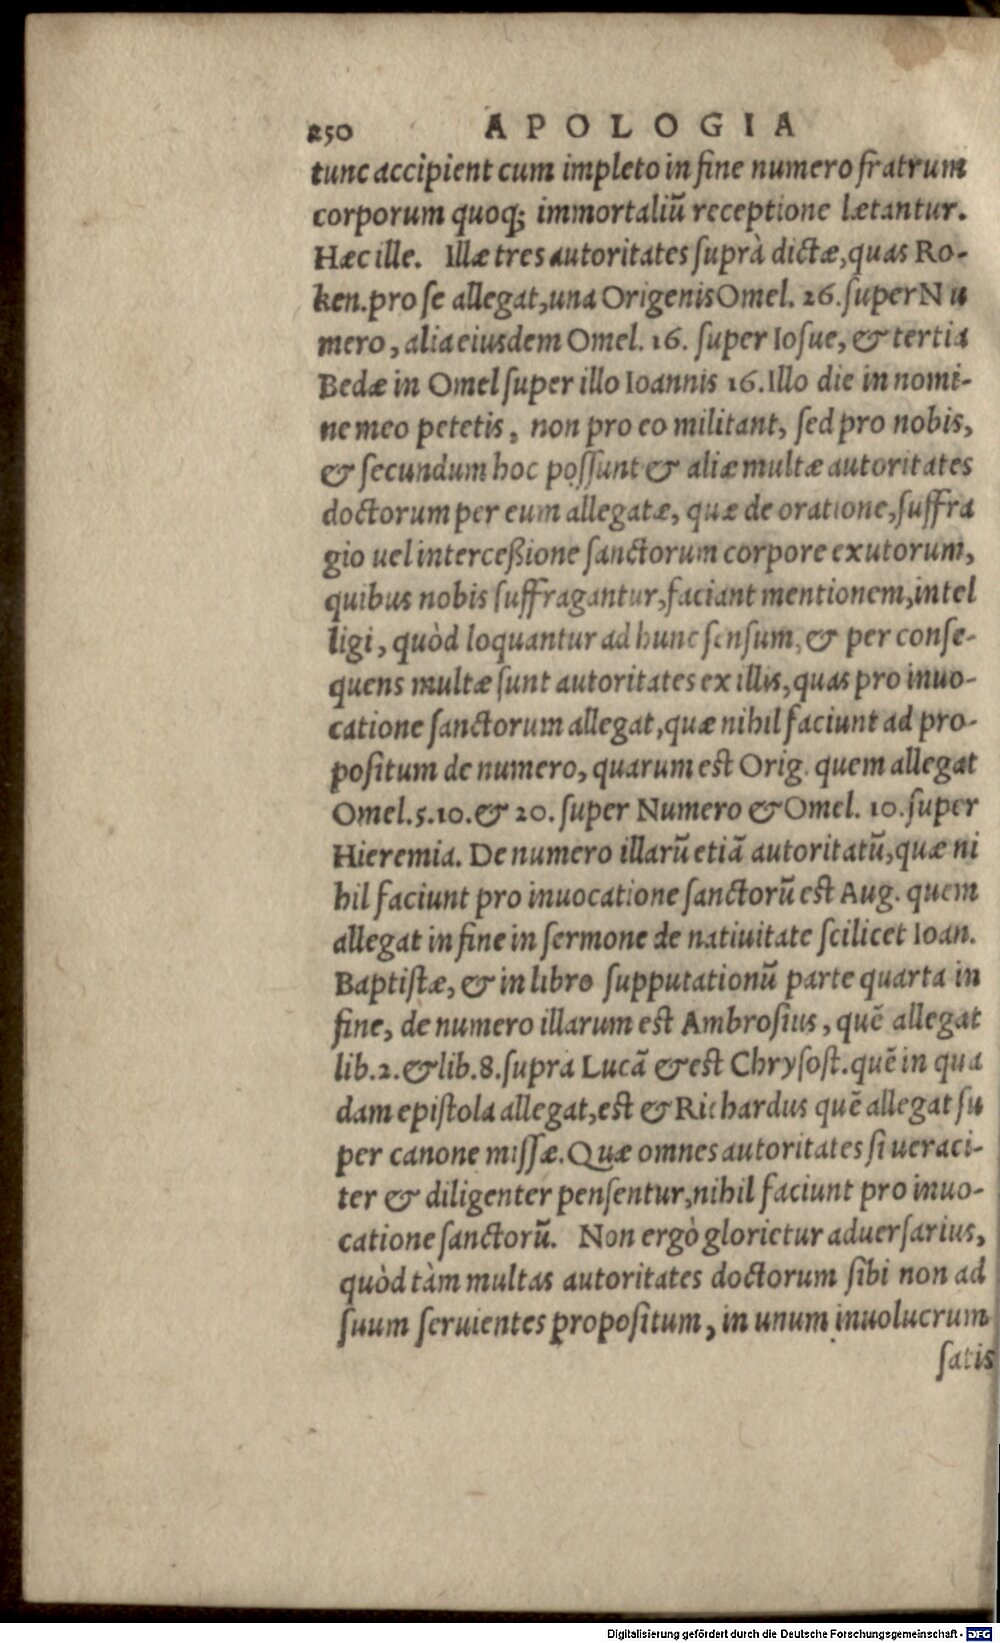 250 APOLOGIA
tunc accipient cum impleto in fine numero fratrum
corporum quoq; immortaliũ receptione lætantur.
Hæc ille. Illæ tres autoritates suprà dictæ, quas Ro-
ken. pro se allegat, una Origenis Omel. 26. super Nu
mero, alia eiusdem Omel. 16. super Iosue, & tertia
Bedæ in Omel super illo Ioannis 16. Illo die in nomi-
ne meo petetis, non pro eo militant, sed pro nobis,
& secundum hoc possunt & aliæ multæ autoritates
doctorum per eum allegatæ, quæ de oratione, suffra
gio uel interceßione sanctorum corpore exutorum,
quibus nobis suffragantur, faciant mentionem, intel
ligi, quòd loquantur ad hunc sensum, & per conse-
quens multæ sunt autoritates ex illis, quas pro inuo-
catione sanctorum allegat, quæ nihil faciunt ad pro-
positum de numero, quarum est Orig. quem allegat
Omel. 5. 10. & 20. super Numero & Omel. 10. super
Hieremia. De numero illarũ etiã autoritatũ, quæ ni
hil faciunt pro inuocatione sanctorũ est Aug. quem
allegat in fine in sermone de natiuitate scilicet Ioan.
Baptistæ, & in libro supputationũ parte quarta in
fine, de numero illarum est Ambrosius, quẽ allegat
lib. 2. & lib. 8. supra Lucã & est Chrysost. quẽ in qua
dam epistola allegat, est & Richardus quẽ allegat su
per canone missæ. Quæ omnes autoritates si ueraci-
ter & diligenter pensentur, nihil faciunt pro inuo-
catione sanctorũ. Non ergò glorietur aduersarius,
quòd tàm multas autoritates doctorum sibi non ad
suum seruientes propositum, in unum inuolucrum
satis
Digitalisierung gefördert durch die Deutsche Forschungsgemeinschaft - DFG